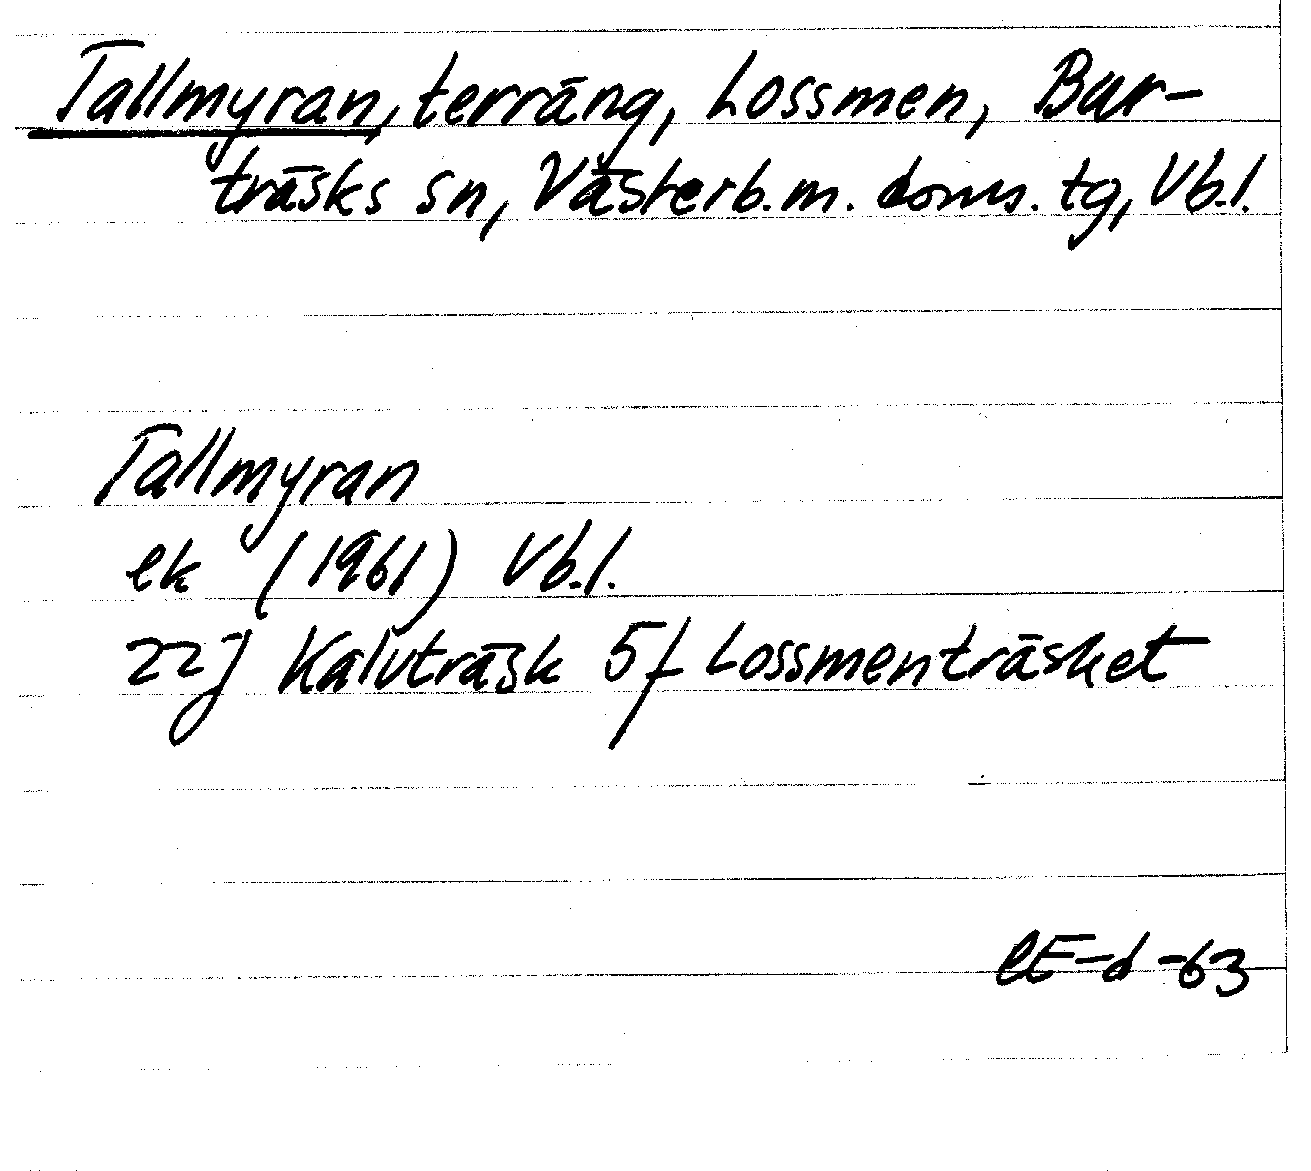 Tallmyran, terräng, Lossmen, Bur-
träsks sn, Västerb.m. doms. tg, Vb.l.
Tallmyran
ek (1961) Vb.l.
22j Kalvträsk 5f Lossmenträsket
EE-d-63